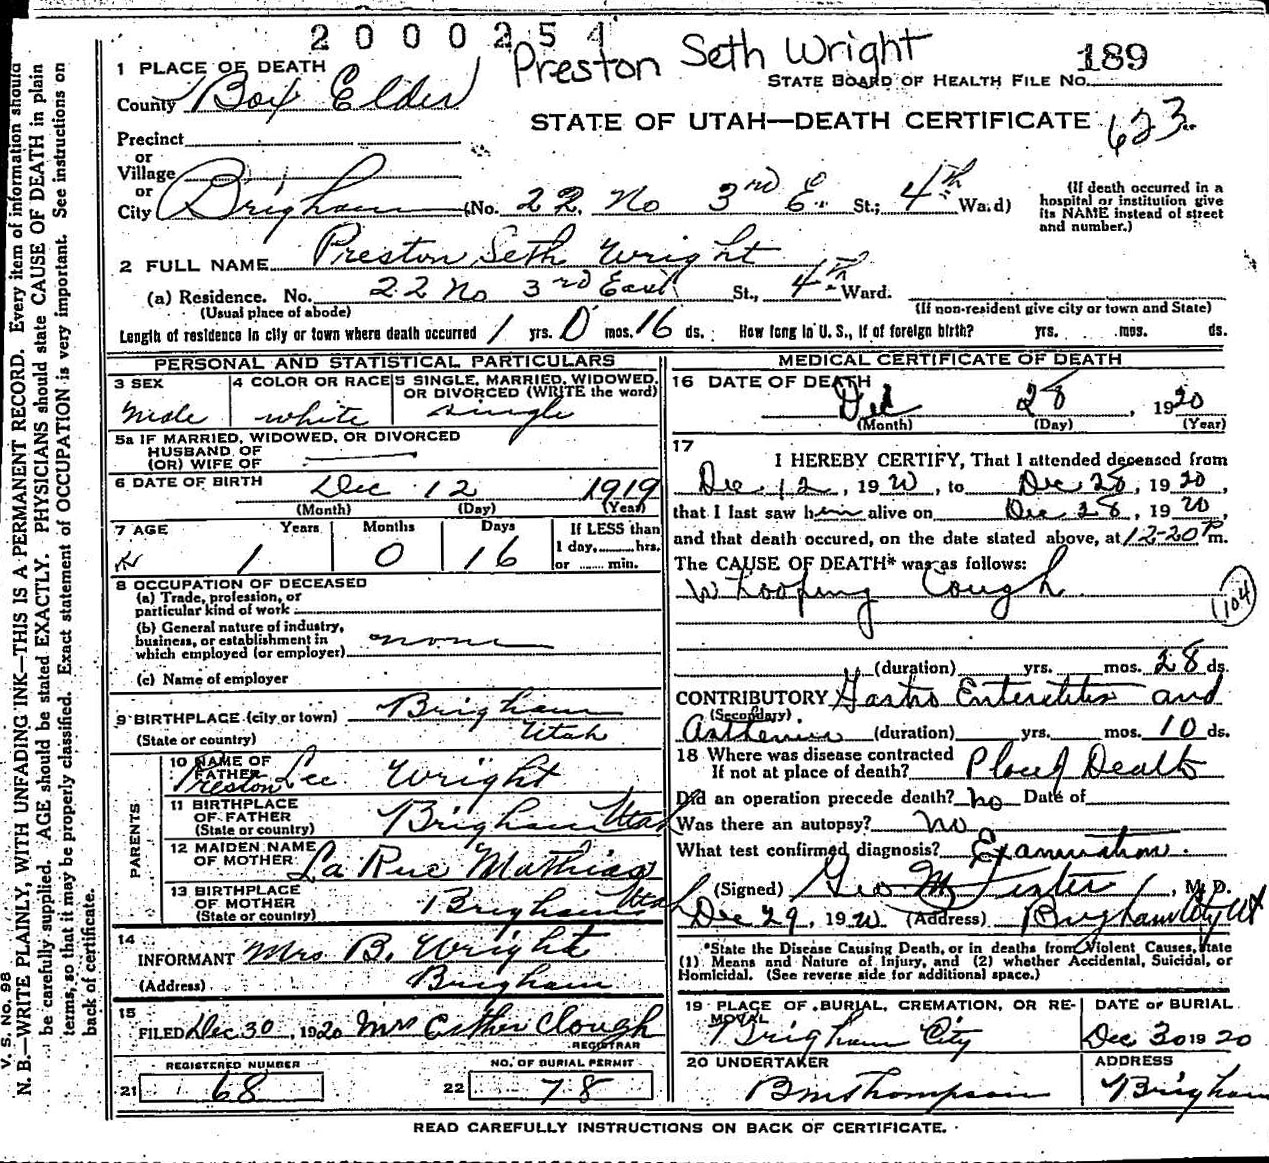 2000254
Preston Seth Wright
189
STATE BOARD OF HEALTH FILE NO.
1 PLACE OF DEATH
County Box Elder
STATE OF UTAH—DEATH CERTIFICATE 623
Precinct
or
Village
or
City Brigham (No. 22 No 3rd E. St.; 4th Ward)
(If death occurred in a hospital or institution give its NAME instead of street and number.)
2 FULL NAME Preston Seth Wright
(a) Residence. No. 22 No 3rd East St., 4th Ward.
(Usual place of abode) (If non-resident give city or town and State)
Length of residence in city or town where death occurred 1 yrs. 0 mos. 16 ds. How long in U. S., if of foreign birth? yrs. mos. ds.
PERSONAL AND STATISTICAL PARTICULARS
3 SEX Male
4 COLOR OR RACE white
5 SINGLE, MARRIED, WIDOWED, OR DIVORCED (WRITE the word) single
5a IF MARRIED, WIDOWED, OR DIVORCED
HUSBAND OF
(OR) WIFE OF
6 DATE OF BIRTH Dec 12 1919
(Month) (Day) (Year)
7 AGE Years Months Days If LESS than
1 0 16 1 day, hrs.
or min.
8 OCCUPATION OF DECEASED
(a) Trade, profession, or
particular kind of work
(b) General nature of industry,
business, or establishment in
which employed (or employer) none
(c) Name of employer
9 BIRTHPLACE (city or town) Brigham
(State or country) Utah
PARENTS
10 NAME OF FATHER Preston Lee Wright
11 BIRTHPLACE OF FATHER Brigham Utah
(State or country)
12 MAIDEN NAME OF MOTHER La Rue Mathias
13 BIRTHPLACE OF MOTHER Brigham Utah
(State or country)
14
INFORMANT Mrs B. Wright
(Address) Brigham
15
FILED Dec 30, 1920 Mrs Esther Clough
REGISTRAR
REGISTERED NUMBER
21 68
NO. OF BURIAL PERMIT
22 78
MEDICAL CERTIFICATE OF DEATH
16 DATE OF DEATH
Dec 28, 1920
(Month) (Day) (Year)
17
I HEREBY CERTIFY, That I attended deceased from
Dec 12, 1920, to Dec 28, 1920,
that I last saw him alive on Dec 28, 1920,
and that death occured, on the date stated above, at 12-20 P m.
The CAUSE OF DEATH* was as follows:
Whooping Cough
104
(duration) yrs. mos. 28 ds.
CONTRIBUTORY Gastro Enteritis and
(Secondary)
Asthenia (duration) yrs. mos. 10 ds.
18 Where was disease contracted
If not at place of death? Place of Death
Did an operation precede death? no Date of
Was there an autopsy? no
What test confirmed diagnosis? Examination.
(Signed) Geo M Fister, M. D.
Dec 29, 1920 (Address) Brigham City Ut
*State the Disease Causing Death, or in deaths from Violent Causes, state
(1) Means and Nature of Injury, and (2) whether Accidental, Suicidal, or
Homicidal. (See reverse side for additional space.)
19 PLACE OF BURIAL, CREMATION, OR REMOVAL
Brigham City
DATE OF BURIAL
Dec 30 1920
20 UNDERTAKER
B M Thompson
ADDRESS
Brigham
READ CAREFULLY INSTRUCTIONS ON BACK OF CERTIFICATE.
V. S. No. 98
N. B.—WRITE PLAINLY, WITH UNFADING INK—THIS IS A PERMANENT RECORD. Every item of information should
be carefully supplied. AGE should be stated EXACTLY. PHYSICIANS should state CAUSE OF DEATH in plain
terms, so that it may be properly classified. Exact statement of OCCUPATION is very important. See instructions on
back of certificate.